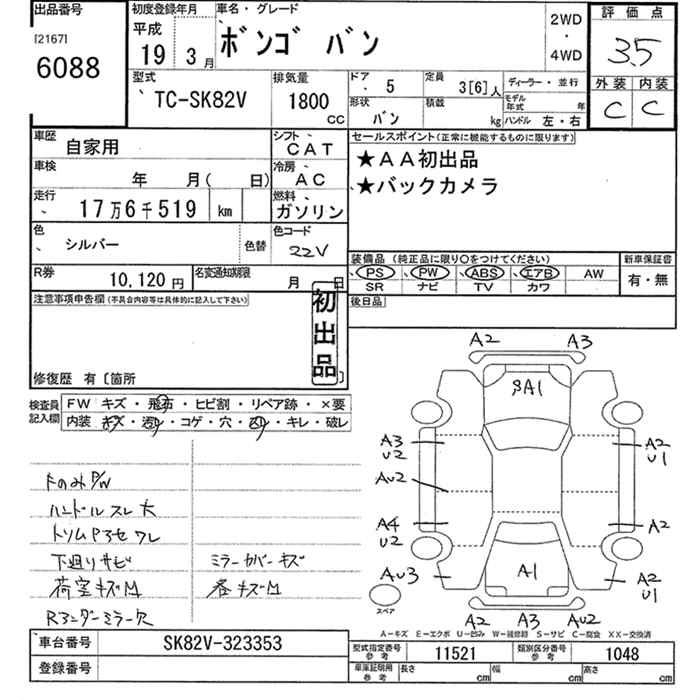 出品番号
[2167]
6088
初度登録年月
平成
19 3月
車名・グレード
ボンゴ バン
2WD
・
4WD
評価点
3.5
外装 内装
C C
型式
TC-SK82V
排気量
1800
CC
ドア
5
定員
3[6]人
形状
バン
積載
kg
ディーラー・並行
モデル年式 年
ハンドル 左・右
車歴
自家用
シフト
CAT
車検
年 月( 日)
冷房
AC
走行
17万6千519 km
燃料
ガソリン
色
シルバー
色替
色コード
22V
R券
10,120円
名変通知期限
月 日
セールスポイント(正常に機能するものに限ります)
★AA初出品
★バックカメラ
装備品(純正品に限り○をつけてください)
PS PW ABS エアB AW
SR ナビ TV カワ
新車保証書
有・無
後日品
注意事項申告欄(不具合内容等は具体的に記入して下さい)
初出品
修復歴 有〔箇所 〕
検査員記入欄
FW キズ・飛石・ヒビ割・リペア跡・×要
内装 キズ・汚れ・コゲ・穴・凹・キレ・破レ
ハンドルスレ大
下廻りサビ
荷室キズM
Rアンダーミラー欠
ミラーカバーキズ
A2 A3
A1
A3
U2
AU2
A4
U2
AU3
A2
U1
A2
A2
U1
A1
スペア
A2 A3 AU2
A-キズ E-エクボ U-凹み W-補修跡 S-サビ C-腐食 XX-交換済
車台番号
SK82V-323353
登録番号
型式指定番号
参考
11521
類別区分番号
参考
1048
車庫証明用
参考
長さ cm
幅 cm
高さ cm